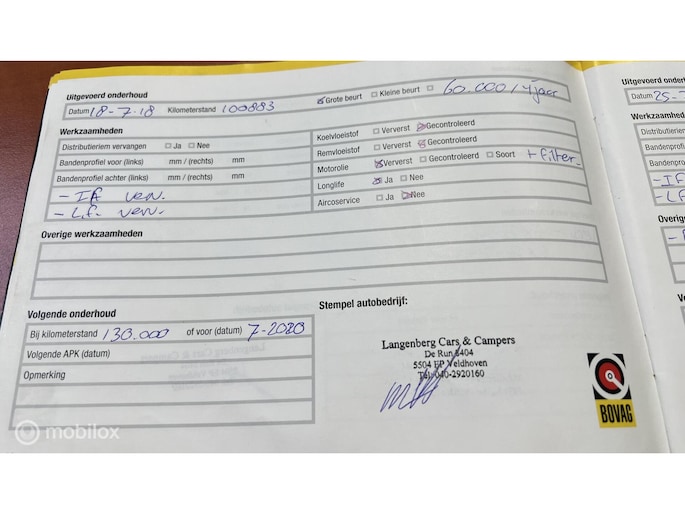 Uitgevoerd onderhoud
Datum 18-7-18 Kilometerstand 100883 ☒ Grote beurt ☐ Kleine beurt ☐ 60.000/4 jaar
Werkzaamheden
Distributieriem vervangen ☐ Ja ☐ Nee
Bandenprofiel voor (links) mm / (rechts) mm
Bandenprofiel achter (links) mm / (rechts) mm
- IF verv.
- L.f. verv.
Koelvloeistof ☐ Ververst ☒ Gecontroleerd
Remvloeistof ☐ Ververst ☒ Gecontroleerd
Motorolie ☒ Ververst ☐ Gecontroleerd ☐ Soort + filter
Longlife ☒ Ja ☐ Nee
Aircoservice ☐ Ja ☒ Nee
Overige werkzaamheden
Volgende onderhoud
Bij kilometerstand 130.000 of voor (datum) 7-2020
Volgende APK (datum)
Opmerking
Stempel autobedrijf:
Langenberg Cars & Campers
De Run 5404
5504 EP Veldhoven
Tel: 040-2920160
BOVAG
Uitgevoerd onderh
Datum 25-
Werkzaamhed
Distributieriem
Bandenprofiel
Bandenprofiel
- IF
- LF
Overig
mobilox